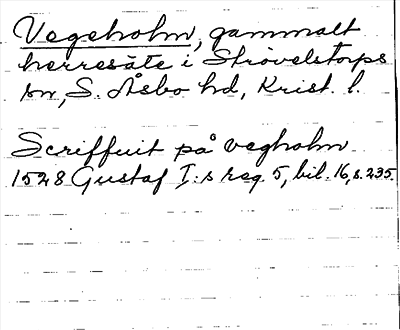 Vegeholm, gammalt
herresäte i Strövelstorps
sn, S. Åsbo hd, Krist. l.
Scriffuit på vegholm
1528 Gustaf I:s reg. 5, bil. 16, s. 235.